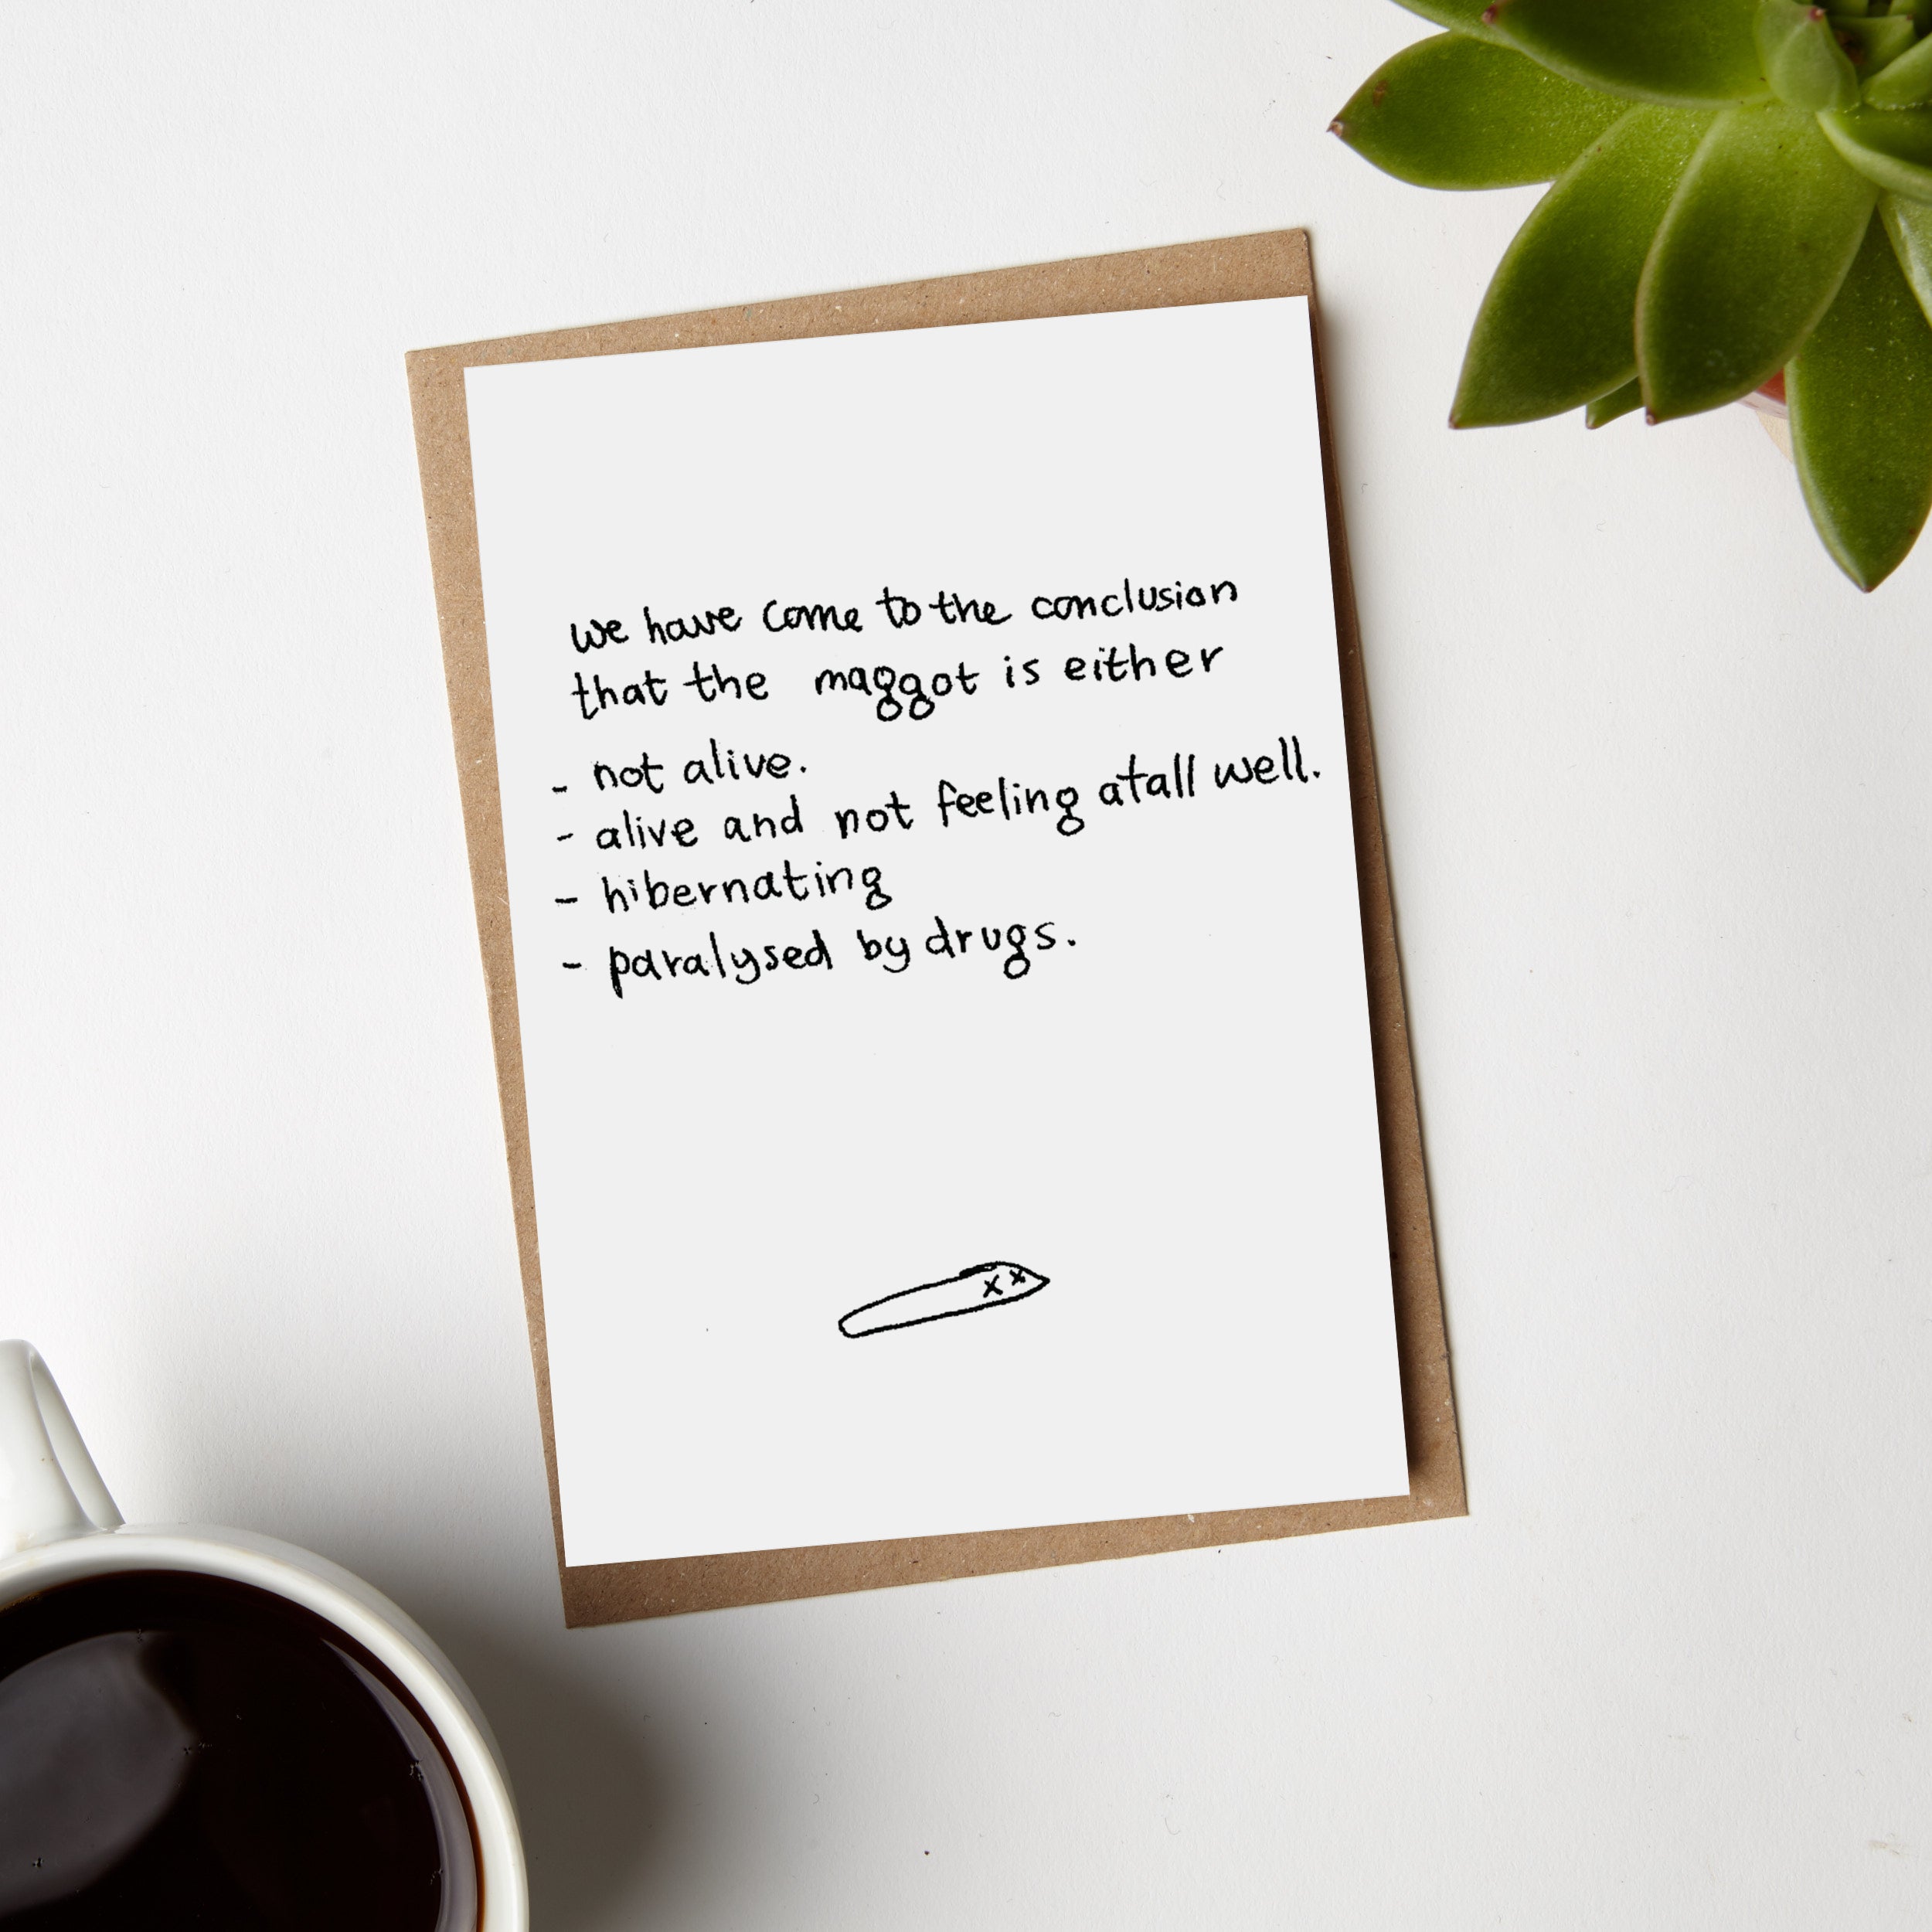 we have come to the conclusion
that the maggot is either
- not alive.
- alive and not feeling atall well.
- hibernating
- paralysed by drugs.
x x